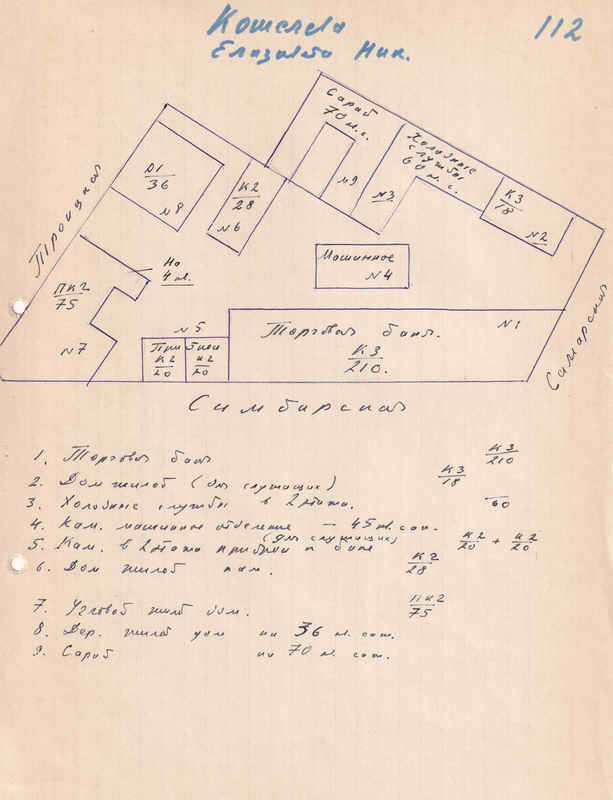 Кошелева
112
Елизавета Ник.
Сарай
70 кв. с.
Холодные
службы
60 кв. с.
Д1
36
№8
К2
28
№6
№9
№3
К3
18
№2
Троицкая
Но
4 кв.
ПК2
75
№7
Машинное
№4
№5
К2
20
К2
20
Торговая баня.
К3
210.
№1
Самарская
Симбирская
1. Торговая баня К3 210
2. Дом жилой (для служащих) К3 18
3. Холодные службы в 2 этажа. 60
4. Кам. машинное отделение — 45 кв. саж.
5. Кам. в 2 этажа к бане (для служащих) К2 20 + К2 20
6. Дом жилой кам. К2 28
7. Угловой жилой дом. ПК2 75
8. Дер. жилой дом на 36 кв. саж.
9. Сарай на 70 кв. саж.